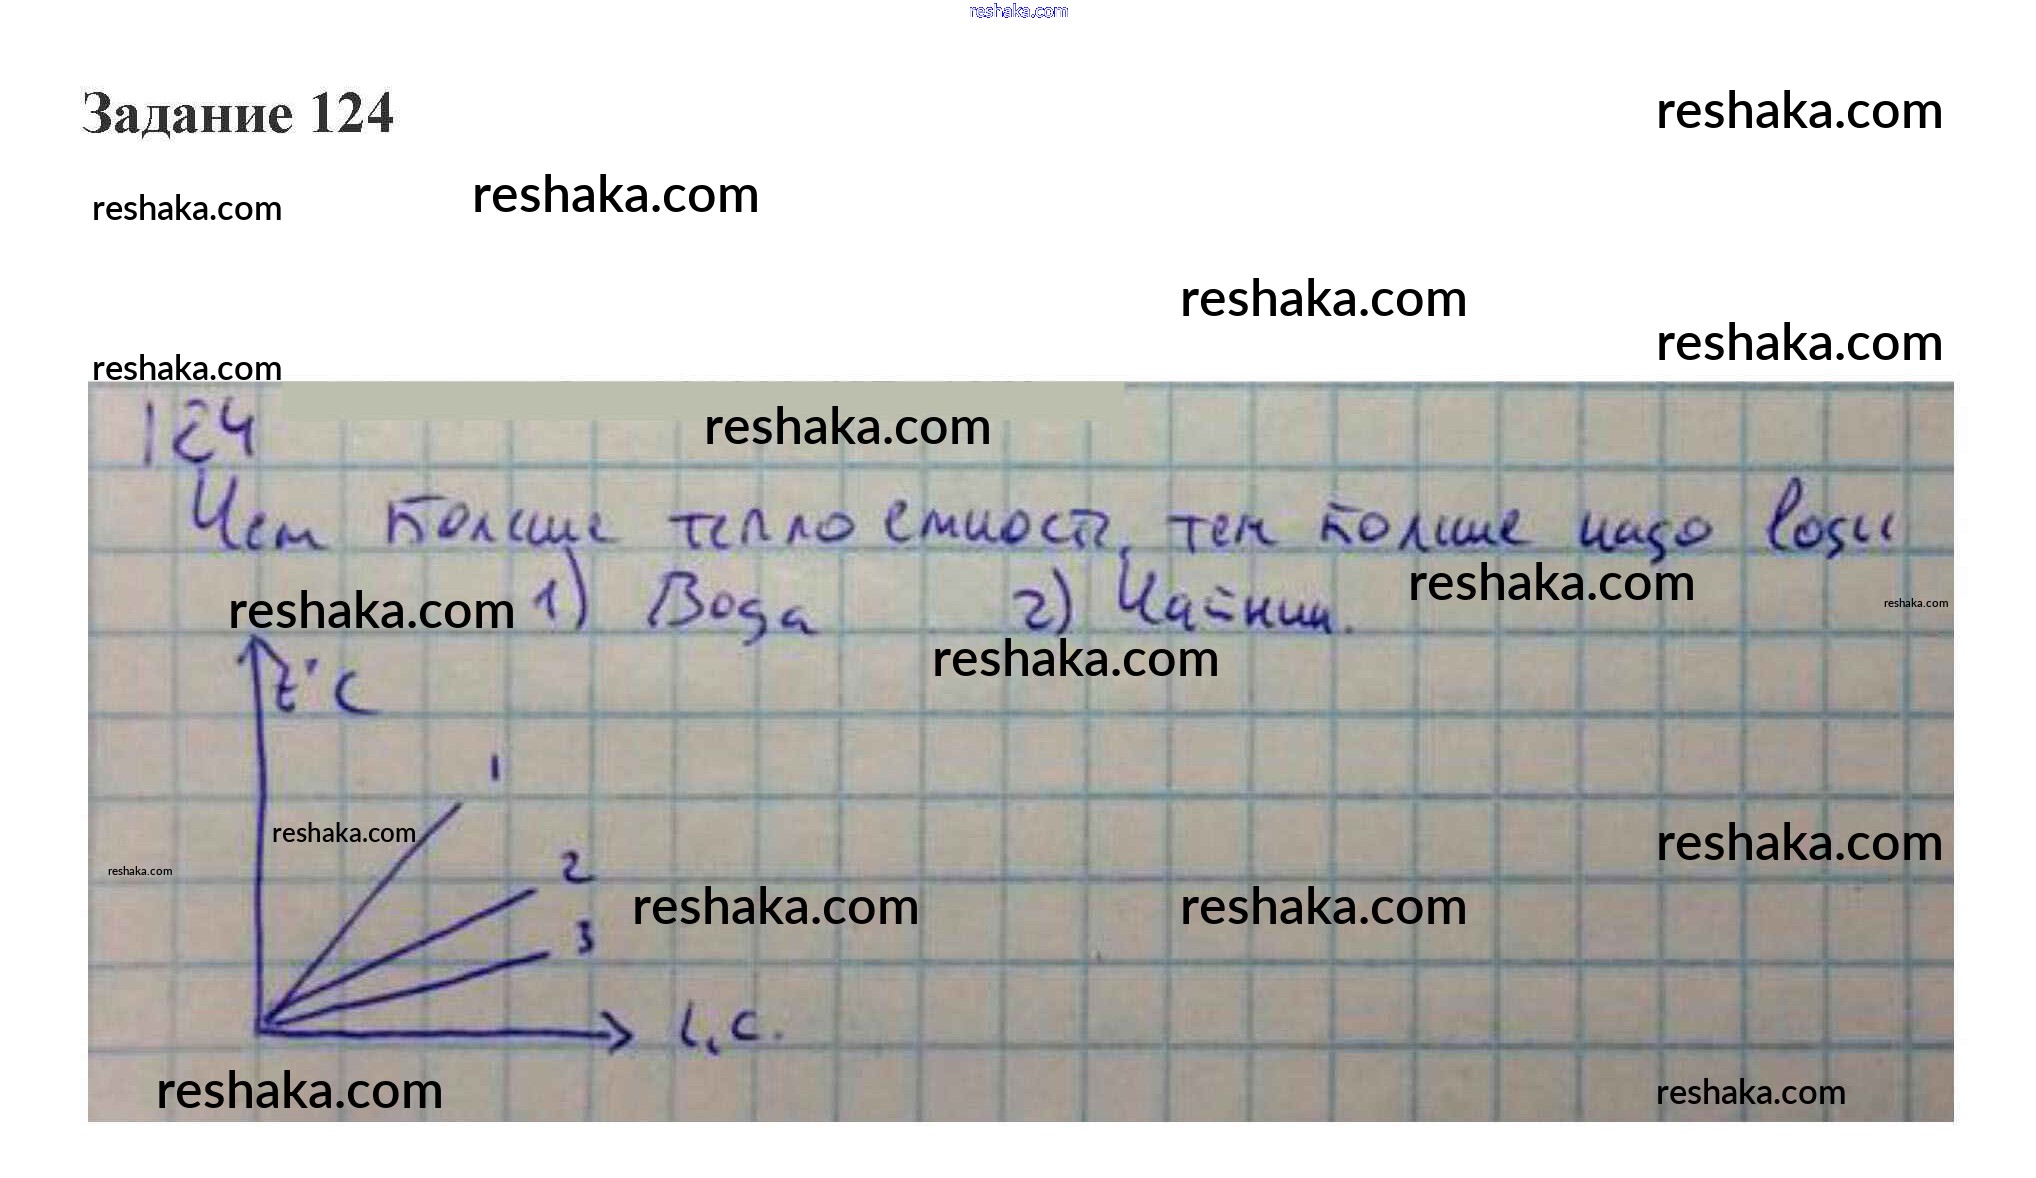 reshaka.com
Задание 124
reshaka.com
reshaka.com
reshaka.com
reshaka.com
reshaka.com
reshaka.com
124
reshaka.com
Чем больше теплоемкость, тем больше надо воды
reshaka.com
reshaka.com 1) Вода 2) Чайник.
reshaka.com
reshaka.com
t°C
1
reshaka.com
reshaka.com
2
reshaka.com
3
reshaka.com
reshaka.com
t, с.
reshaka.com
reshaka.com